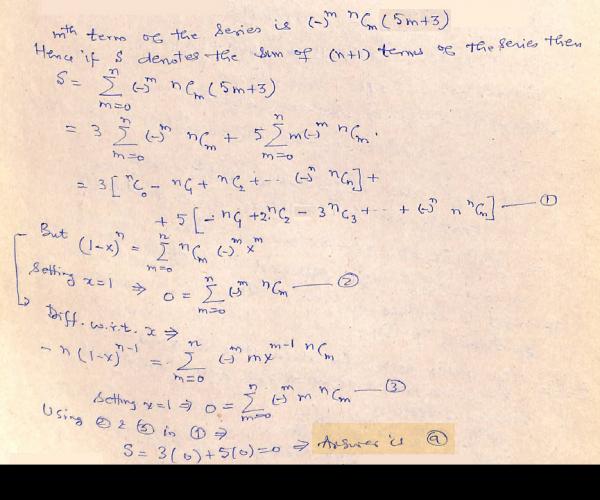 mth term of the series is (-)^m nCm (5m+3)
Hence if S denotes the sum of (n+1) terms of the series then
S = Σ_{m=0}^{n} (-)^m nCm (5m+3)
= 3 Σ_{m=0}^{n} (-)^m nCm + 5 Σ_{m=0}^{n} m(-)^m nCm.
= 3[ nC0 - nC1 + nC2 + -·· (-)^n nCn ] +
+ 5[ - nC1 + 2·nC2 - 3 nC3 + ·· + (-)^n n nCn ] — ①
But (1-x)^n = Σ_{m=0}^{n} nCm (-)^m x^m
Setting x=1 ⇒ 0 = Σ_{m=0}^{n} (-)^m nCm — ②
Diff. w.r.t. x ⇒
- n (1-x)^{n-1} = Σ_{m=0}^{n} (-)^m m x^{m-1} nCm
Setting x=1 ⇒ 0 = Σ_{m=0}^{n} (-)^m m nCm — ③
Using ② & ③ in ① ⇒
S = 3(0) + 5(0) = 0 ⇒ Answer is ⓐ